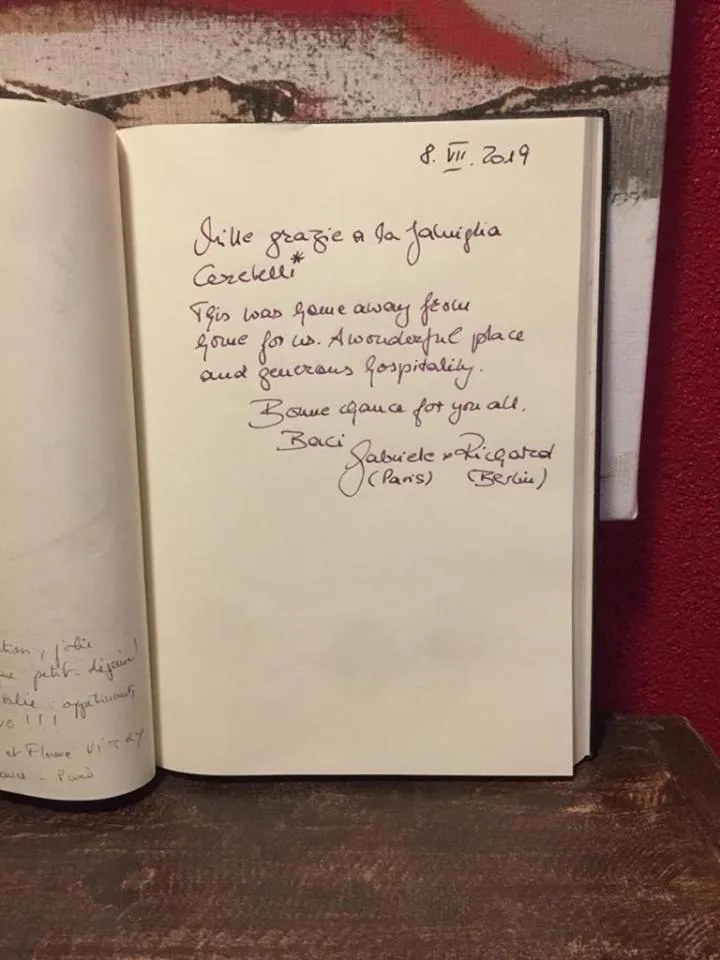 tion, jolie
petit-déjeuner!
Italie appétissants,
vo!!!
et Flore VITRY
Paris
8. VII. 2019
Mille grazie a la famiglia
Ceretelli*
This was home away from
home for us. A wonderful place
and generous hospitality.
Bonne chance for you all.
Baci
Gabriele + Richard
(Paris) (Berlin)